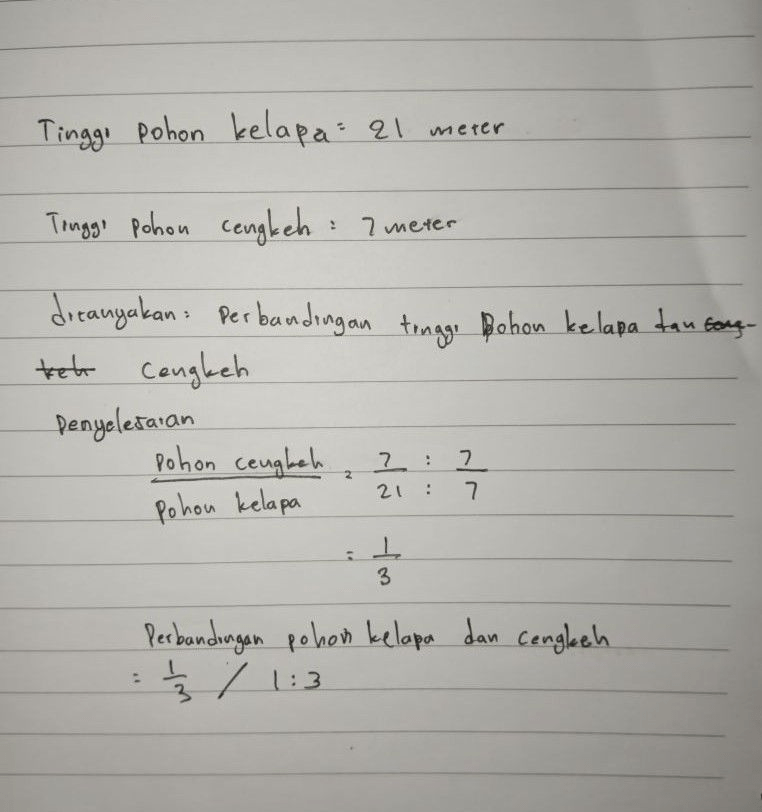 Tinggi pohon kelapa = 21 meter
Tinggi pohon cengkeh : 7 meter
ditanyakan : Perbandingan tinggi pohon kelapa dan ceng-
keh cengkeh
Penyelesaian
Pohon cengkeh = 7 : 7
Pohon kelapa 21 : 7
= 1
3
Perbandingan pohon kelapa dan cengkeh
= 1/3 / 1 : 3